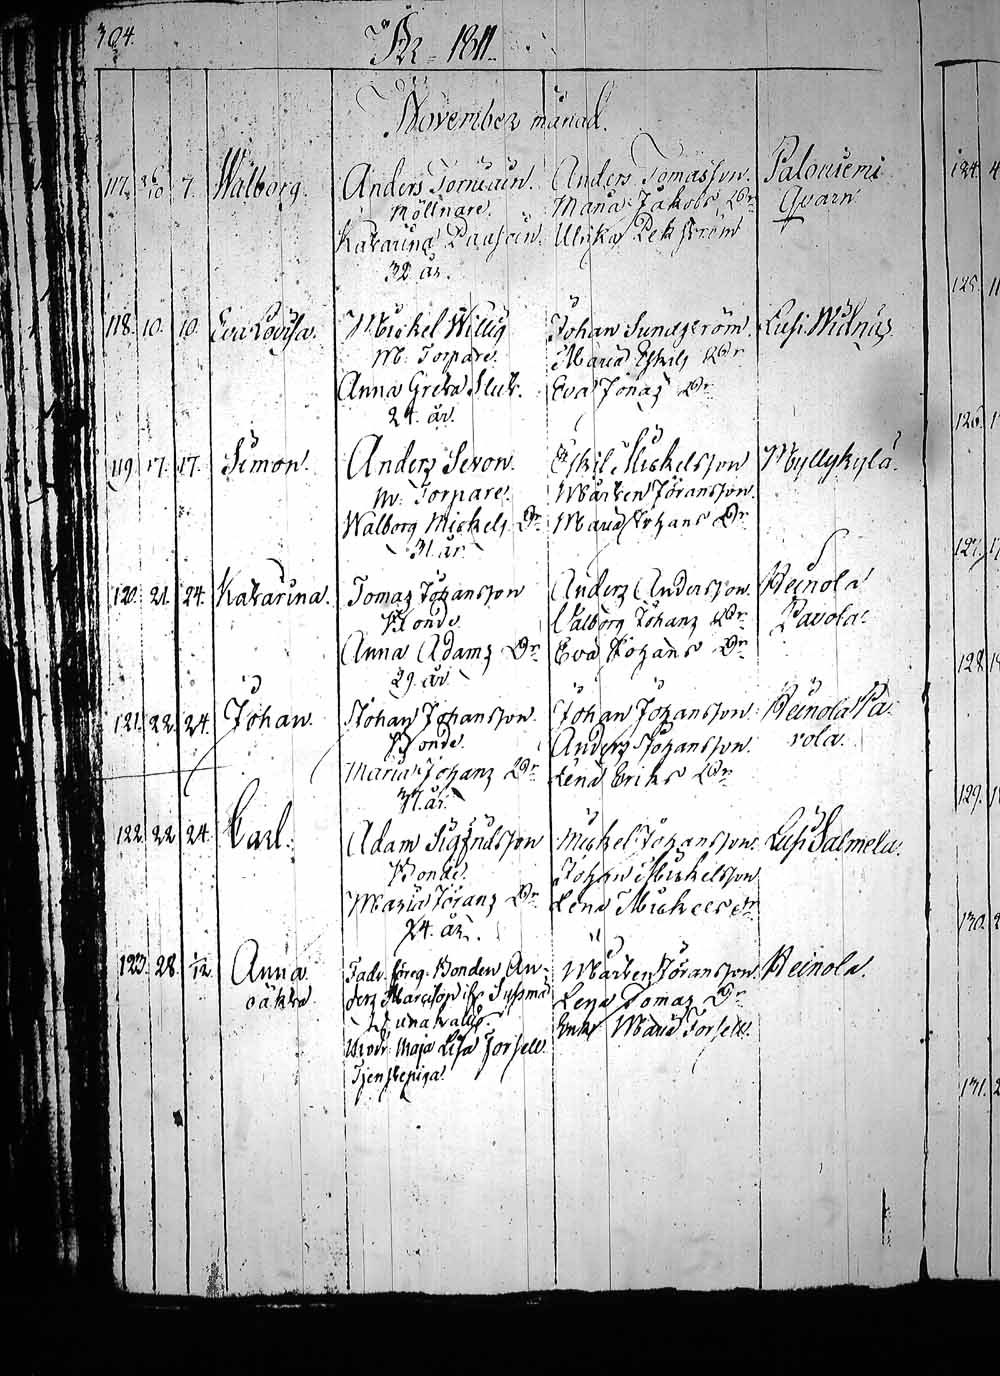 304.
År 1811.
November månad.
117. 26/10 7. Walborg. Anders Törniäin. Anders Tomasson. Paloniemi
Möllnare. Maria Jakobs Dr. Qvarn
Katarina Ulrika Pehrström
32 år.
118. 10. 10. Eva Lovisa. Mickel Willig Johan Sundström. Lusi
M. Torpare. Maria Eskils Dr
Anna Greta Eva Jonaz Dr
24. år.
119 17. 17. Simon. Anderz Sevon. Eskil Mickelsson Myllykylä.
M. Torpare. Mårten Jöransson.
Walborg Mickels Dr. Maria Johans Dr.
31 år
120. 21. 24. Katarina. Tomaz Johansson Anderz Andersson. Heinola
Bonde. Valborg Johanz Dr.
Anna Adamz Dr. Eva Johans Dr
29. år
121. 22. 24. Johan. Johan Johansson. Johan Johansson. Heinola Pa
Bonde. Anderz Johansson. vola.
Maria Johanz Dr. Lena Eriks Dr.
37. år.
122. 22 24. Carl. Adam Sigfridsson Mickel Johansson. Lusi Salmela.
Bonde. Johan Mickelsson
Maria Jöranz Dr. Lena Mickels dr
24. år.
123. 28. 1/12 Anna Fadr. föreg. Bonden An- Mårten Jöransson. Heinola.
oäkta. derz Sysmä Lena Tomaz Dr
Enk. Maria Forsell.
Modr. Maja Lisa Forsell
Tjenstepiga.
124. 4
125. 11
126. 1
127. 17
128. 1
129. 1
130. 2
131. 2